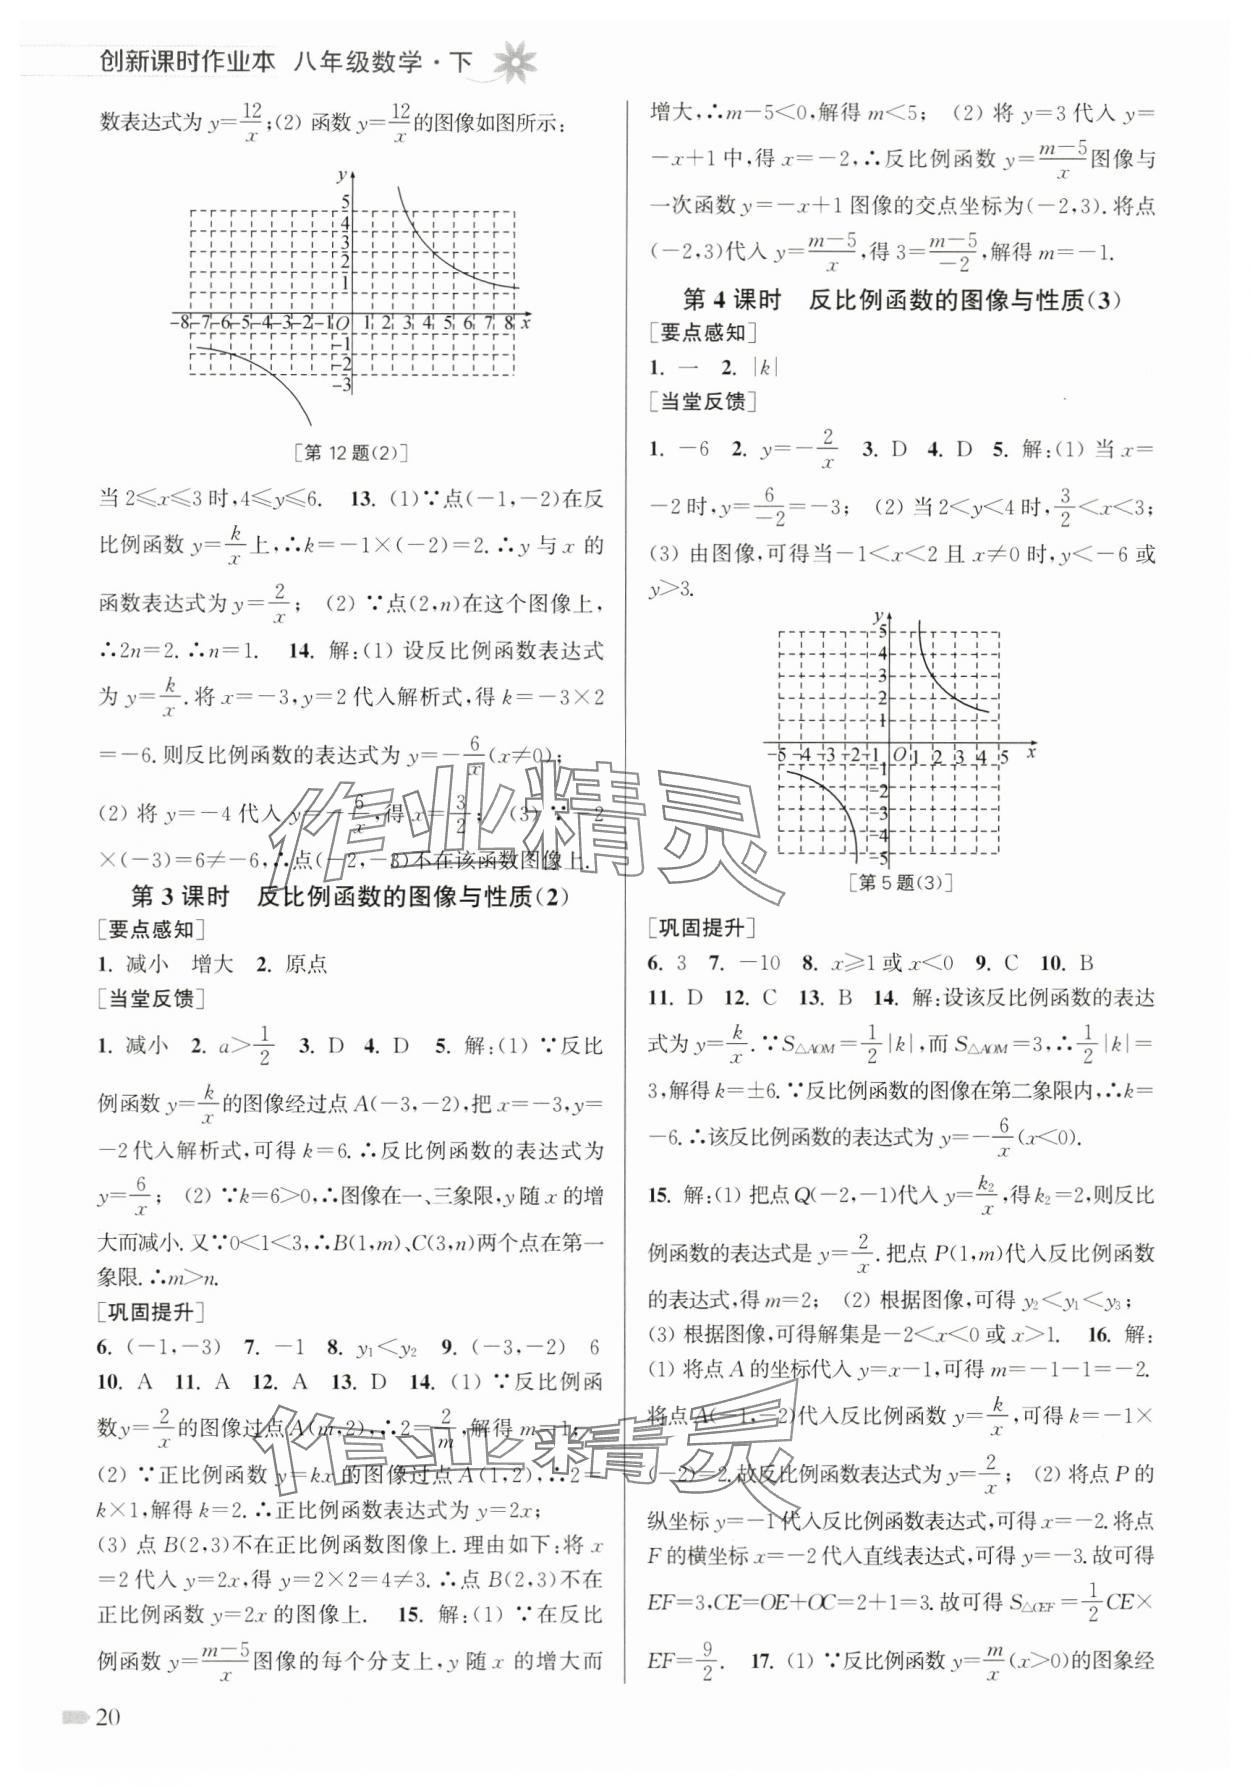 创新课时作业本 八年级数学·下
数表达式为 y=12/x;(2) 函数 y=12/x的图像如图所示:
y
5
4
3
2
1
-8-7-6-5-4-3-2-1O 1 2 3 4 5 6 7 8 x
-1
-2
-3
[第12题(2)]
当 2≤x≤3 时,4≤y≤6. 13. (1)∵点(-1,-2)在反
比例函数 y=k/x上,∴k=-1×(-2)=2.∴y 与 x 的
函数表达式为 y=2/x; (2) ∵点(2,n)在这个图像上,
∴2n=2.∴n=1. 14. 解:(1) 设反比例函数表达式
为 y=k/x.将 x=-3,y=2 代入解析式,得 k=-3×2
=-6.则反比例函数的表达式为 y=-6/x(x≠0);
(2) 将 y=-4 代入 y=-6/x,得 x=3/2; (3) ∵-2
×(-3)=6≠-6,∴点(-2,-3)不在该函数图像上.
第 3 课时 反比例函数的图像与性质(2)
[要点感知]
1. 减小 增大 2. 原点
[当堂反馈]
1. 减小 2. a>1/2 3. D 4. D 5. 解:(1) ∵反比
例函数 y=k/x的图像经过点 A(-3,-2),把 x=-3,y=
-2代入解析式,可得 k=6.∴反比例函数的表达式为
y=6/x; (2) ∵k=6>0,∴图像在一、三象限,y 随 x 的增
大而减小.又∵0<1<3,∴B(1,m)、C(3,n)两个点在第一
象限.∴m>n.
[巩固提升]
6. (-1,-3) 7. -1 8. y₁<y₂ 9. (-3,-2) 6
10. A 11. A 12. A 13. D 14. (1) ∵反比例函
数y=2/x的图像过点A(m,2),∴2=2/m,解得 m=1;
(2) ∵正比例函数 y=kx 的图像过点 A(1,2),∴2=
k×1,解得 k=2.∴正比例函数表达式为 y=2x;
(3) 点 B(2,3)不在正比例函数图像上.理由如下:将 x
=2代入 y=2x,得 y=2×2=4≠3.∴点 B(2,3)不在
正比例函数 y=2x 的图像上. 15. 解:(1) ∵在反比
例函数 y=m-5/x图像的每个分支上,y 随 x 的增大而
20
增大,∴m-5<0,解得 m<5; (2) 将 y=3 代入 y=
-x+1 中,得 x=-2,∴反比例函数 y=m-5/x图像与
一次函数 y=-x+1 图像的交点坐标为(-2,3).将点
(-2,3)代入 y=m-5/x,得 3=m-5/-2,解得 m=-1.
第 4 课时 反比例函数的图像与性质(3)
[要点感知]
1. 一 2. |k|
[当堂反馈]
1. -6 2. y=-2/x 3. D 4. D 5. 解:(1) 当 x=
-2 时,y=6/-2=-3; (2) 当 2<y<4 时,3/2<x<3;
(3) 由图像,可得当-1<x<2 且 x≠0 时,y<-6 或
y>3.
y
5
4
3
2
1
-5-4-3-2-1 O 1 2 3 4 5 x
-1
-2
-3
-4
-5
[第5题(3)]
[巩固提升]
6. 3 7. -10 8. x≥1 或 x<0 9. C 10. B
11. D 12. C 13. B 14. 解:设该反比例函数的表达
式为 y=k/x.∵S△AOM=1/2|k|,而 S△AOM=3,∴1/2|k|=
3,解得 k=±6.∵反比例函数的图像在第二象限内,∴k=
-6.∴该反比例函数的表达式为 y=-6/x(x<0).
15. 解:(1) 把点 Q(-2,-1)代入 y=k₂/x,得 k₂=2,则反比
例函数的表达式是 y=2/x.把点 P(1,m)代入反比例函数
的表达式,得 m=2; (2) 根据图像,可得 y₂<y₁<y₃;
(3) 根据图像,可得解集是-2<x<0 或 x>1. 16. 解:
(1) 将点 A 的坐标代入 y=x-1,可得 m=-1-1=-2.
将点 A(-1,-2)代入反比例函数 y=k/x,可得 k=-1×
(-2)=2.故反比例函数表达式为 y=2/x; (2) 将点 P 的
纵坐标 y=-1代入反比例函数表达式,可得 x=-2.将点
F 的横坐标 x=-2 代入直线表达式,可得 y=-3.故可得
EF=3,CE=OE+OC=2+1=3.故可得 S△CEF=1/2CE×
EF=9/2. 17. (1) ∵反比例函数 y=m/x(x>0)的图象经
作业精灵
作业精灵